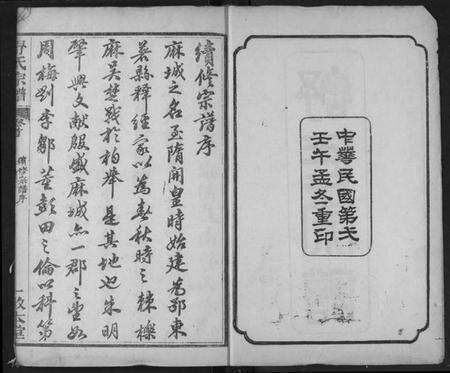 中華民國第弍
壬午孟冬重印
續修宗譜序
麻城之名至隋開皇時始建為鄂東
名縣釋經家以為春秋時之棘櫟
麻吳楚戰於柏舉是其地也朱明
肇興文獻殷盛麻城尤一郡之望如
周梅劉李鄒董彭田之倫以科第
氏宗譜
卷首
續修宗譜序
一 敦本堂